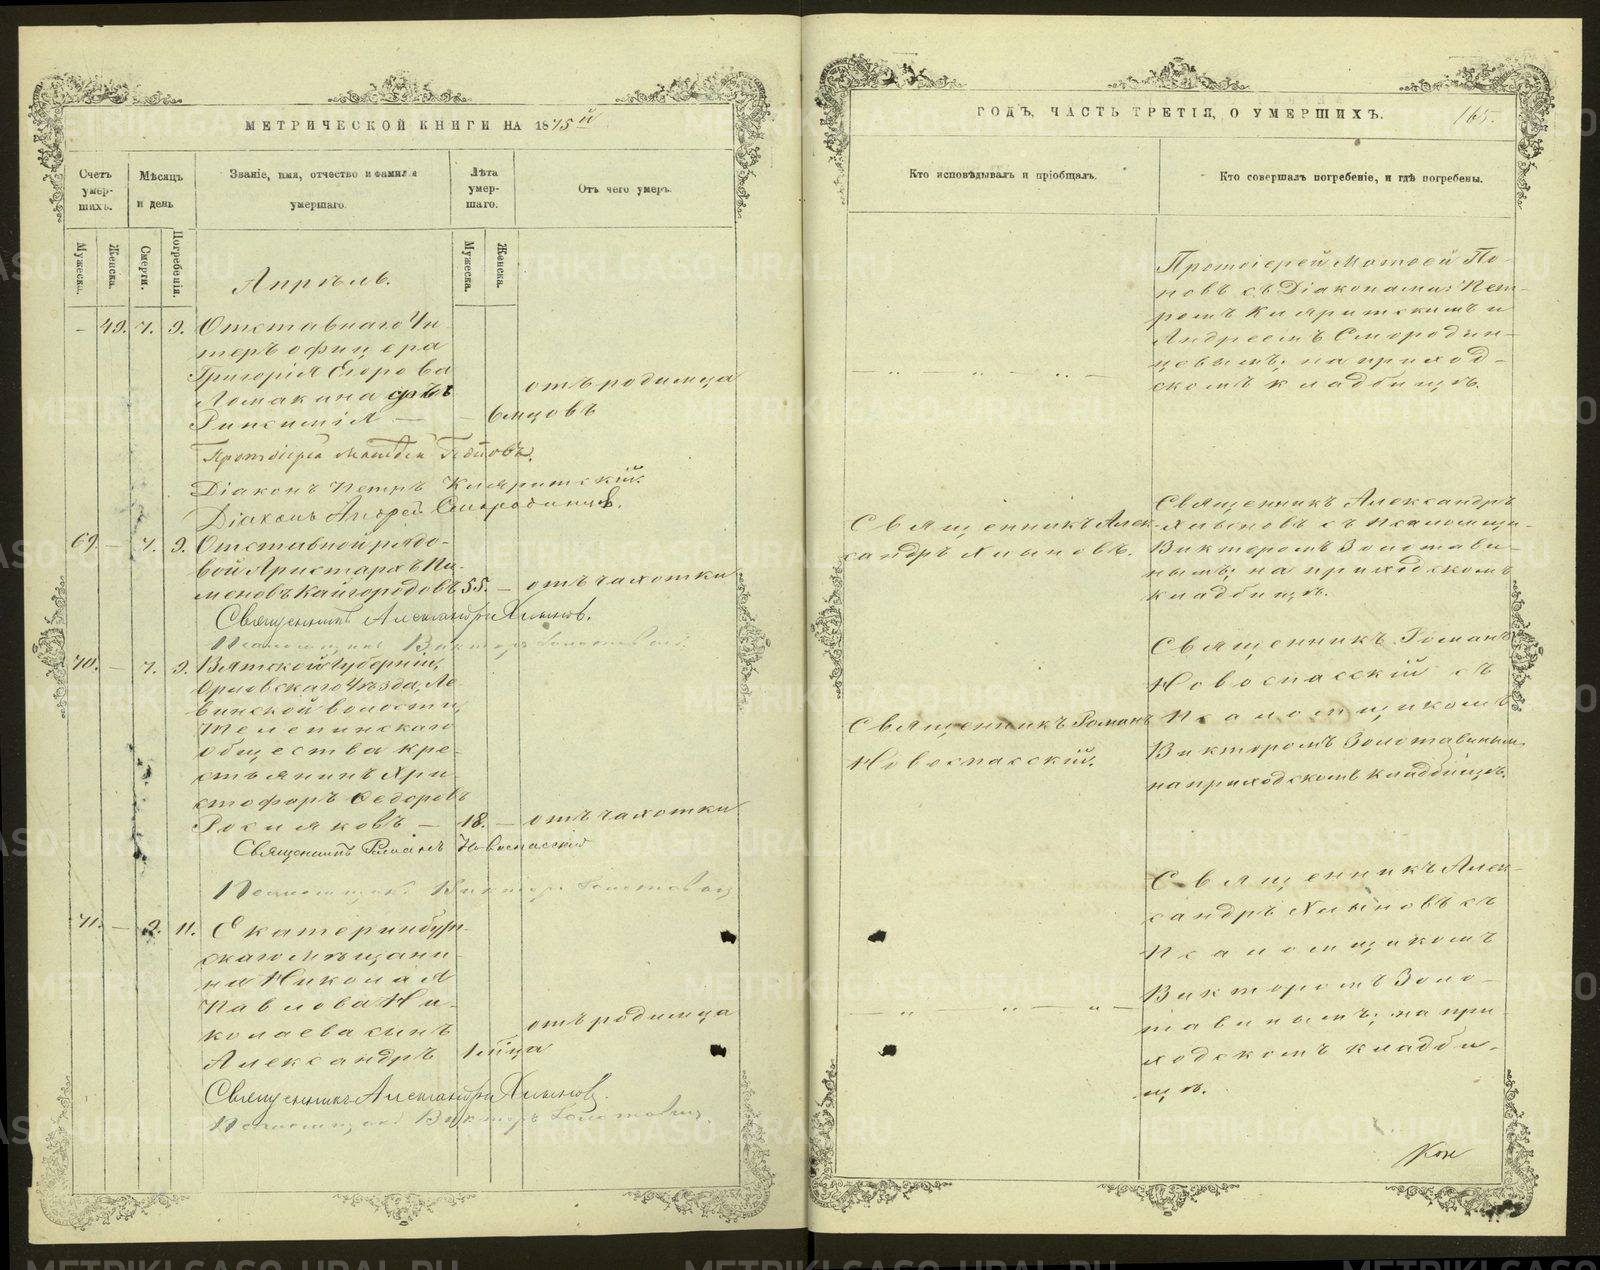 МЕТРИЧЕСКОЙ КНИГИ НА 1875й
Счетъ умер- шихъ.
Мѣсяцъ и день
Званіе, имя, отчество и фамилія умершаго.
Лѣта умер- шаго.
Отъ чего умеръ.
Мужеска.
Женска.
Смерти.
Погребенія.
Мужеска.
Женска.
Апрѣль.
— 49. 7. 9. Отставнаго Ун-
теръ офицера
Григорія Егорова
Ломакина дочь
— 6 мцовъ
отъ родимца
Протоіерей Матвей Поповъ.
Діаконъ Петръ
Діаконъ Андрей Смородинцовъ.
69. — 7. 9. Отставной рядо-
вой Аристархъ Пи-
меновъ Кайгородовъ 55. — отъ чахотки
Священникъ Александръ Хлыновъ.
Псаломщикъ Викторъ
70. — 7. 9. Вятской Губерніи,
Орловскаго Уѣзда, Ле-
винской волости
общества кре-
стьянинъ Хри-
стофоръ Ѳедоровъ
— 18. — отъ чахотки
Священникъ Романъ Новоспасскій
Псаломщикъ Викторъ
71. — 9. 11. Екатеринбург-
скаго мѣщани-
на Николая
Павлова Ни-
колаева сынъ
Александръ 1 м̃ца
отъ родимца
Священникъ Александръ Хлыновъ.
Псаломщикъ Викторъ
ГОДЪ, ЧАСТЬ ТРЕТІЯ, О УМЕРШИХЪ.
165.
Кто исповѣдывалъ и пріобщалъ.
Кто совершалъ погребеніе, и гдѣ погребены.
Протоіерей Матвей По-
повъ съ Діаконами: Пет-
ромъ и
Андреемъ Смородин-
цовымъ; на приход-
скомъ кладбищѣ.
Священникъ Алек-
сандръ Хлыновъ.
Священникъ Александръ
Хлыновъ съ псаломщи-
Викторомъ Золотави-
нымъ; на приходскомъ
кладбищѣ.
Священникъ Романъ
Новоспасскій.
Священникъ Романъ
Новоспасскій съ
Псаломщикомъ
Викторомъ Золотавинымъ
на приходскомъ кладбищѣ.
Священникъ Алек-
сандръ Хлыновъ съ
Псаломщикомъ
Викторомъ Золо-
тавинымъ; на при-
ходскомъ кладби-
щѣ.
METRIKI.GASO-URAL.RU